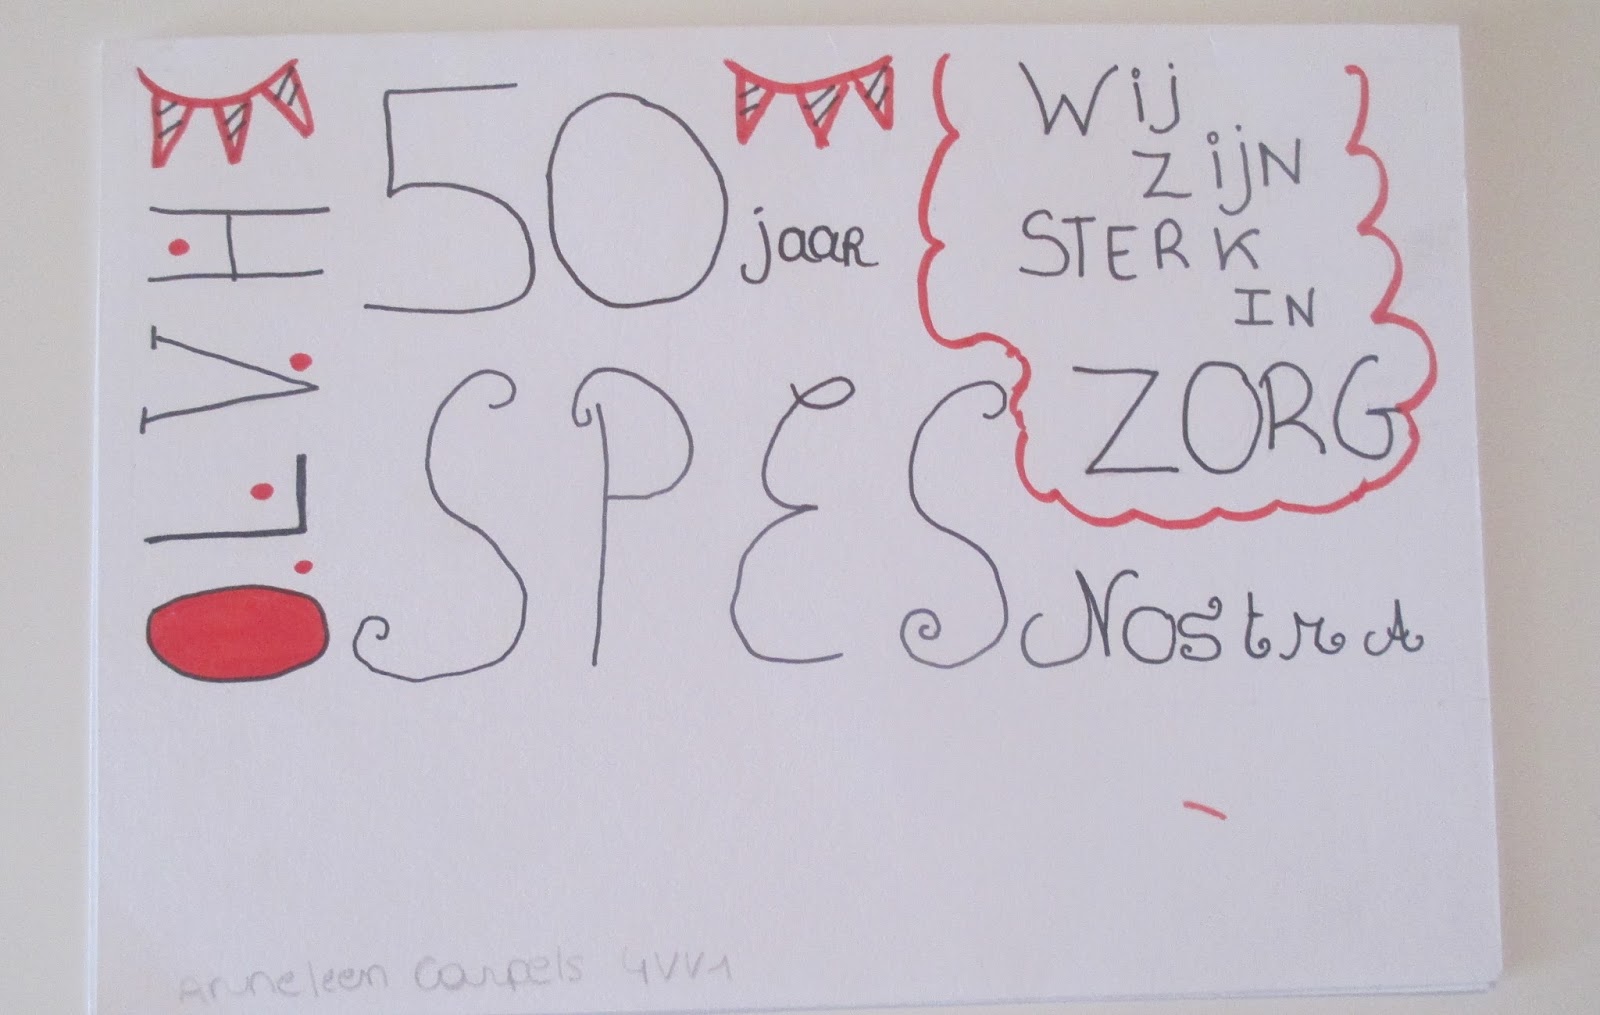 O.L.V.H
50 jaar
SPES Nostra
Wij
zijn
STERK
IN
ZORG
Anneleen Carpels 4VV1